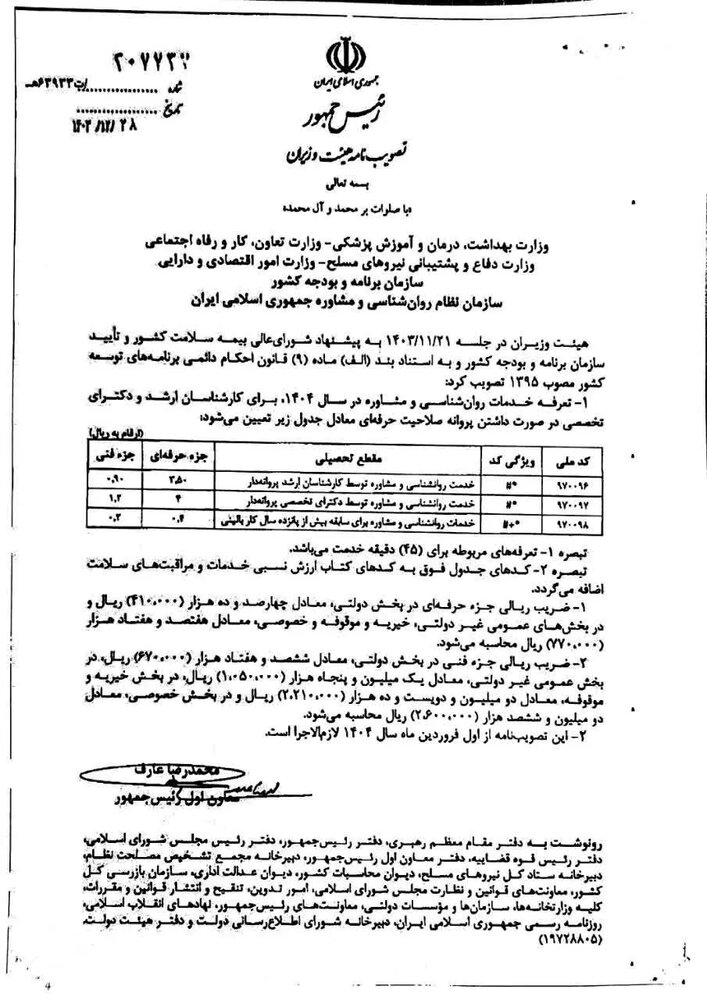 ۲۰۷۷۳۲
شماره ................/ت۶۳۹۳۳هـ
تاریخ ................
۱۴۰۳/۱۲/۲۸
جمهوری اسلامی ایران
رئیس جمهور
تصویب نامه هیئت وزیران
بسمه تعالی
«با صلوات بر محمد و آل محمد»
وزارت بهداشت، درمان و آموزش پزشکی- وزارت تعاون، کار و رفاه اجتماعی
وزارت دفاع و پشتیبانی نیروهای مسلح- وزارت امور اقتصادی و دارایی
سازمان برنامه و بودجه کشور
سازمان نظام روان‌شناسی و مشاوره جمهوری اسلامی ایران
هیئت وزیران در جلسه ۱۴۰۳/۱۱/۲۱ به پیشنهاد شورای‌عالی بیمه سلامت کشور و تأیید
سازمان برنامه و بودجه کشور و به استناد بند (الف) ماده (۹) قانون احکام دائمی برنامه‌های توسعه
کشور مصوب ۱۳۹۵ تصویب کرد:
۱- تعرفه خدمات روان‌شناسی و مشاوره در سال ۱۴۰۴، برای کارشناسان ارشد و دکترای
تخصصی در صورت داشتن پروانه صلاحیت حرفه‌ای معادل جدول زیر تعیین می‌شود:
(ارقام به ریال)
کد ملی ویژگی کد مقطع تحصیلی جزء حرفه‌ای جزء فنی
۹۷۰۰۹۶ #* خدمت روانشناسی و مشاوره توسط کارشناسان ارشد پروانه‌دار ۳,۵۰ ۰,۹۰
۹۷۰۰۹۷ #* خدمت روانشناسی و مشاوره توسط دکترای تخصصی پروانه‌دار ۴ ۱,۲
۹۷۰۰۹۸ #+* خدمات روانشناسی و مشاوره برای سابقه بیش از پانزده سال کار بالینی ۰,۴ ۰,۲
تبصره ۱- تعرفه‌های مربوطه برای (۴۵) دقیقه خدمت می‌باشد.
تبصره ۲- کدهای جدول فوق به کدهای کتاب ارزش نسبی خدمات و مراقبت‌های سلامت
اضافه می‌گردد.
۱- ضریب ریالی جزء حرفه‌ای در بخش دولتی، معادل چهارصد و ده هزار (۴۱۰,۰۰۰) ریال و
در بخش‌های عمومی غیر دولتی، خیریه و موقوفه و خصوصی، معادل هفتصد و هفتاد هزار
(۷۷۰,۰۰۰) ریال محاسبه می‌شود.
۲- ضریب ریالی جزء فنی در بخش دولتی، معادل ششصد و هفتاد هزار (۶۷۰,۰۰۰) ریال، در
بخش عمومی غیر دولتی، معادل یک میلیون و پنجاه هزار (۱,۰۵۰,۰۰۰) ریال، در بخش خیریه و
موقوفه، معادل دو میلیون و دویست و ده هزار (۲,۲۱۰,۰۰۰) ریال و در بخش خصوصی، معادل
دو میلیون و ششصد هزار (۲,۶۰۰,۰۰۰) ریال محاسبه می‌شود.
۲- این تصویب‌نامه از اول فروردین ماه سال ۱۴۰۴ لازم‌الاجرا است.
محمدرضا عارف
معاون اول رئیس‌جمهور
رونوشت به دفتر مقام معظم رهبری، دفتر رئیس‌جمهور، دفتر رئیس مجلس شورای اسلامی،
دفتر رئیس قوه قضاییه، دفتر معاون اول رئیس‌جمهور، دبیرخانه مجمع تشخیص مصلحت نظام،
دبیرخانه ستاد کل نیروهای مسلح، دیوان محاسبات کشور، دیوان عدالت اداری، سازمان بازرسی کل
کشور، معاونت‌های قوانین و نظارت مجلس شورای اسلامی، امور تدوین، تنقیح و انتشار قوانین و مقررات،
کلیه وزارتخانه‌ها، سازمان‌ها و مؤسسات دولتی، معاونت‌های رئیس‌جمهور، نهادهای انقلاب اسلامی،
روزنامه رسمی جمهوری اسلامی ایران، دبیرخانه شورای اطلاع‌رسانی دولت و دفتر هیئت دولت.
(۱۹۷۲۸۸۰۵)